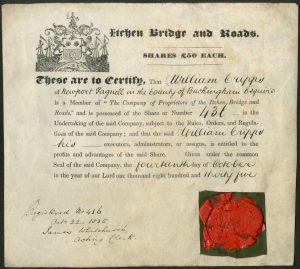 Itchen Bridge and Roads.
SHARES £50 EACH.
These are to Certify, That William Cripps
of Newport Pagnell in the County of Buckingham Esquire
is a Member of "The Company of Proprietors of the Itchen Bridge and
Roads," and is possessed of the Share or Number 436 in the
Undertaking of the said Company, subject to the Rules, Orders, and Regula-
tions of the said Company; and that the said William Cripps
his executors, administrators, or assigns, is entitled to the
profits and advantages of the said Share. Given under the common
Seal of the said Company, the fourteenth day of October
in the year of our Lord one thousand eight hundred and thirty five
Registered No 436
Oct 22 1835
James
Acting Clerk.